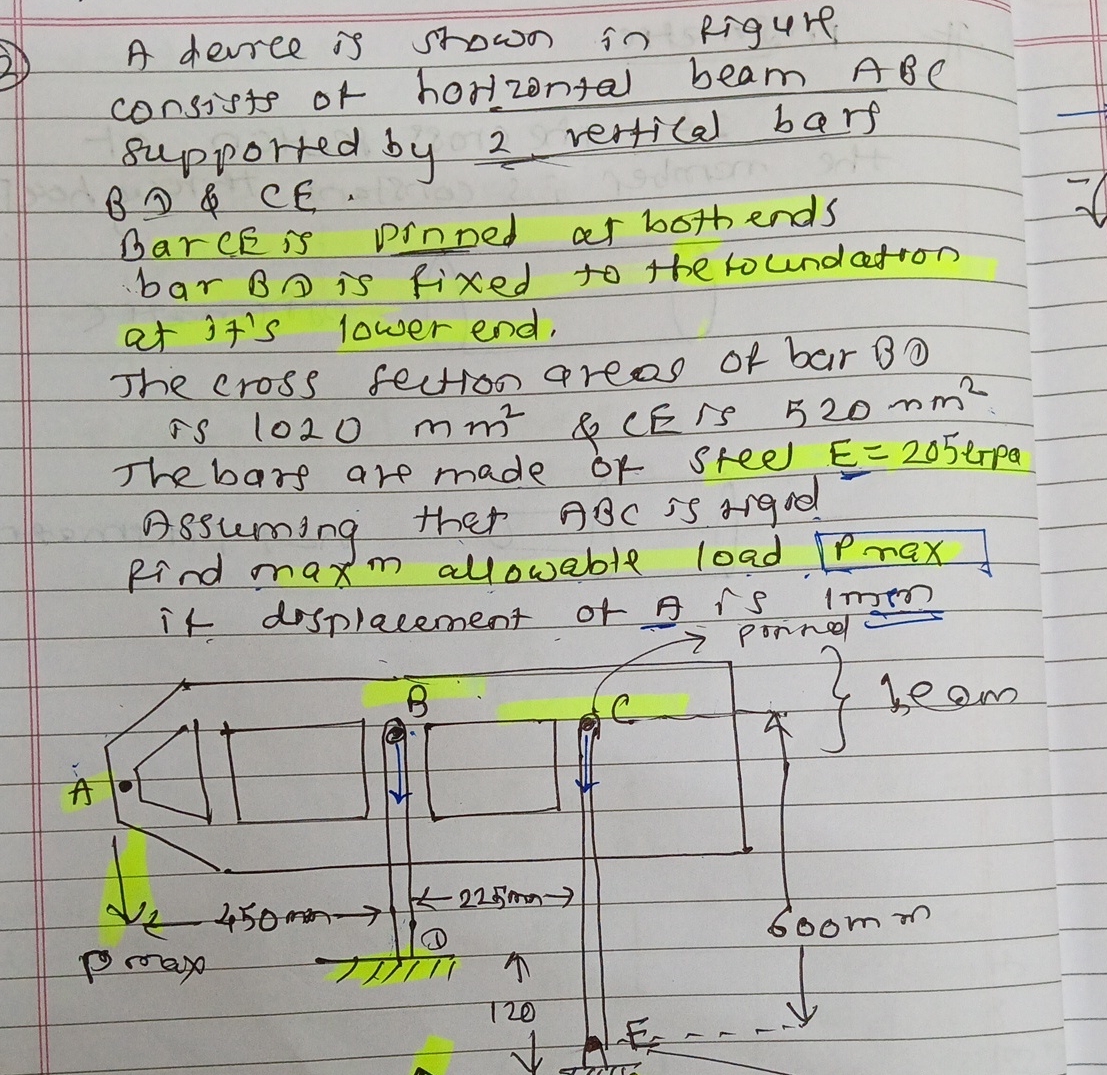 2)
A device is shown in figure
consists of horizontal beam ABC
supported by 2 vertical bars
BD & CE.
Bar CE is pinned at both ends
bar BD is fixed to the foundation
at it's lower end.
The cross section areas of bar BD
is 1020 mm² & CE is 520 mm².
The bars are made of steel E = 205 Gpa
Assuming that ABC is rigid
Find maxm allowable load Pmax
if displacement of A is 1mm
pinned
B
C
beam
A
450mm
225mm
600mm
D
Pmax
120
E